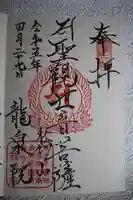 奉拝
聖観世音菩薩
龍泉院
令和五年
四月二十九日